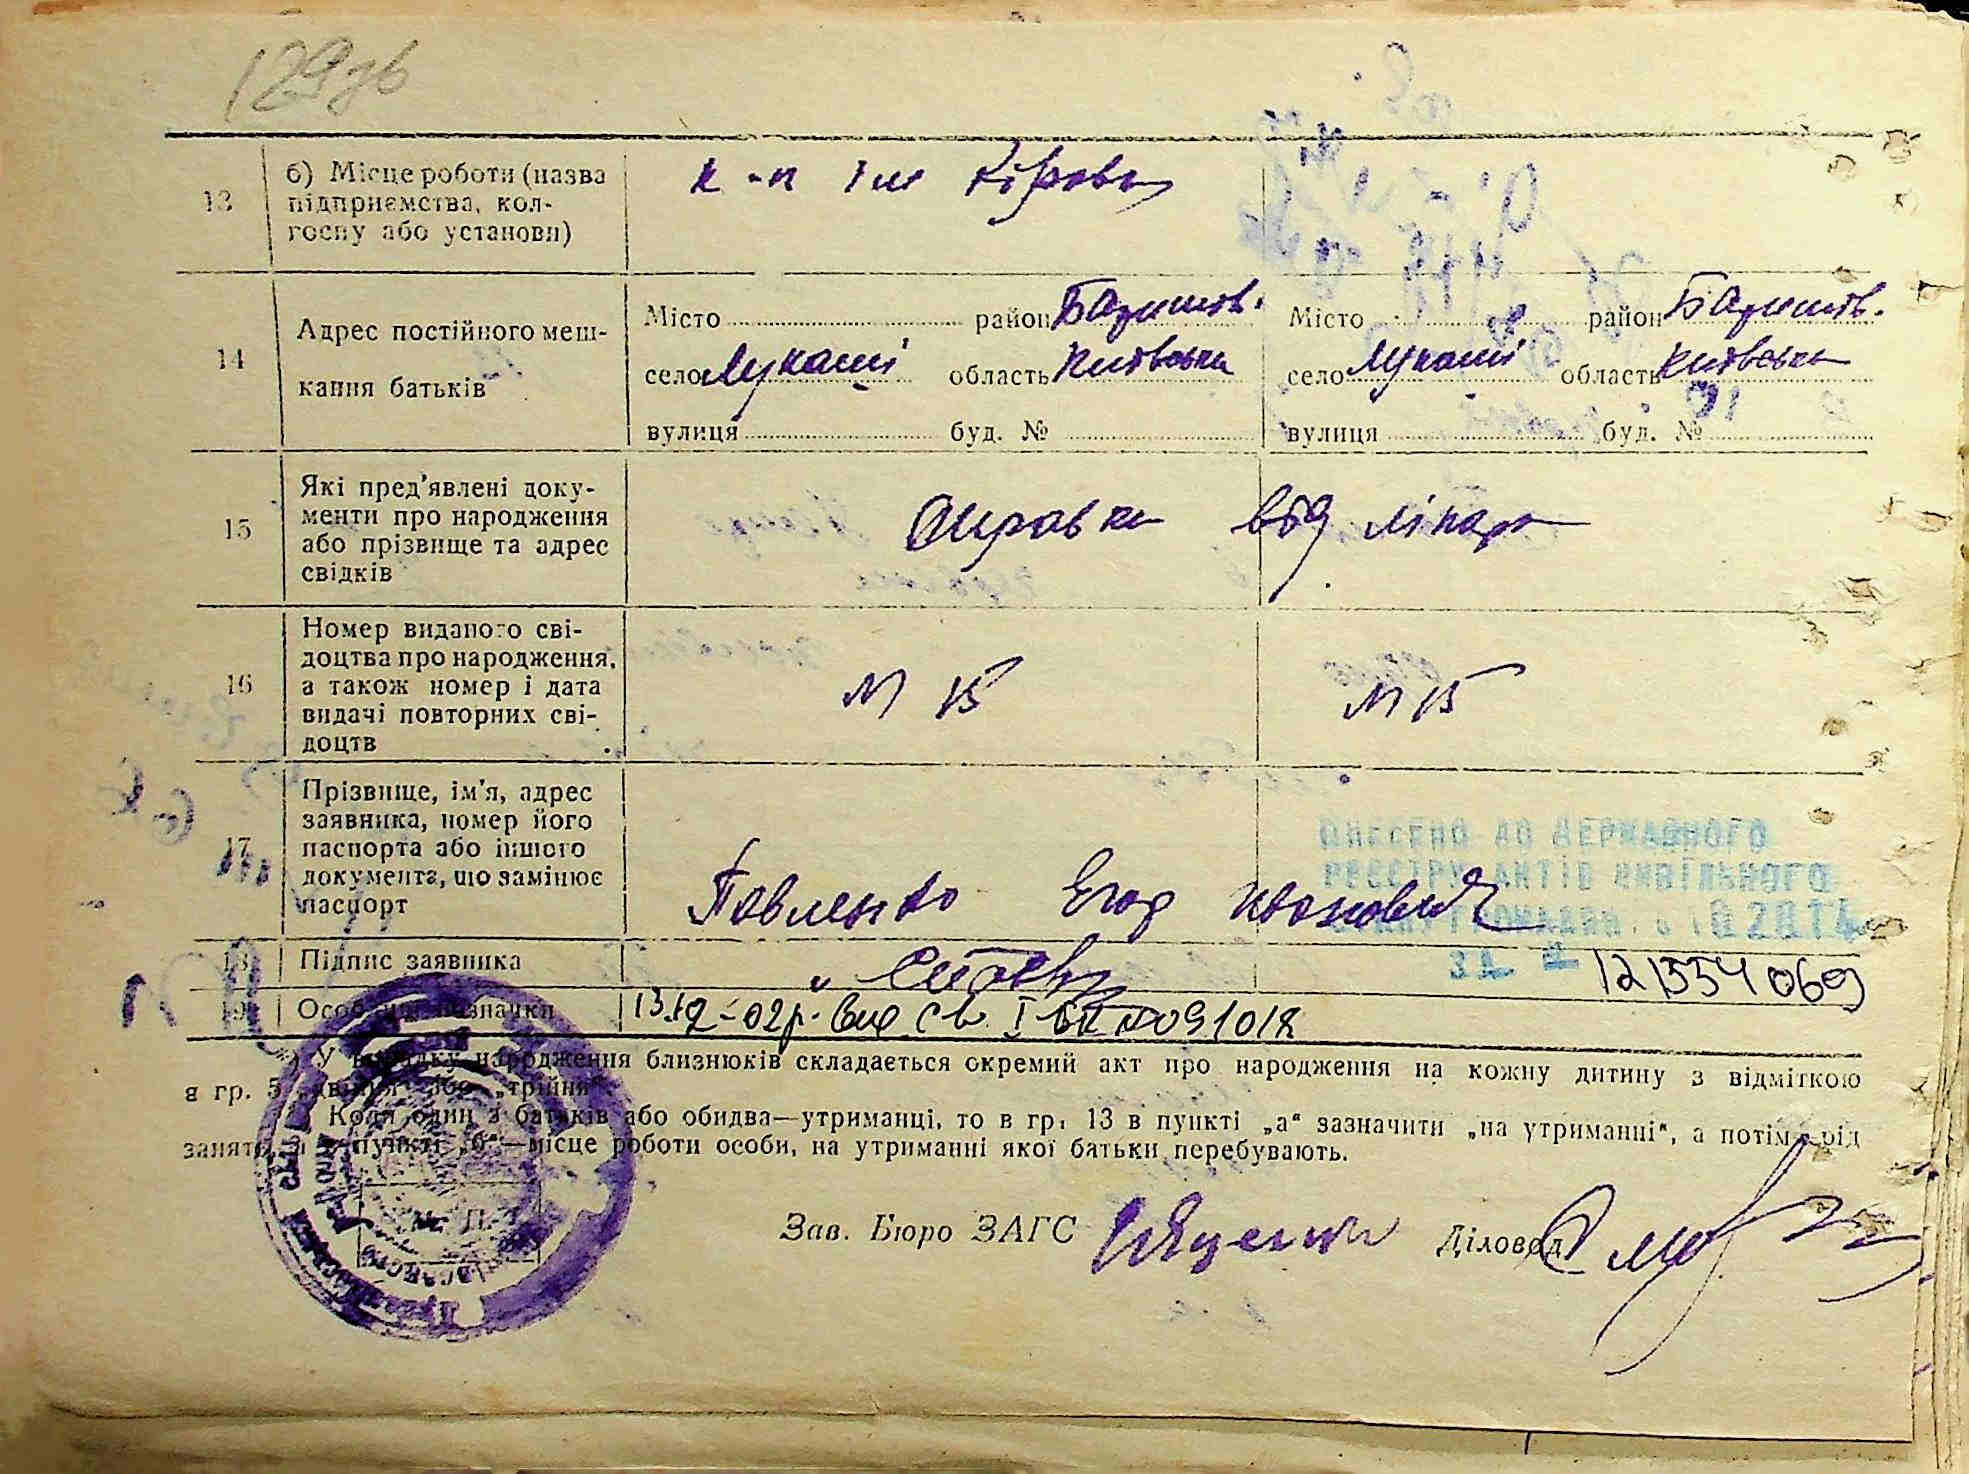 129зв
13 б) Місце роботи (назва
підприємства, кол-
госпу або установи)
к-п ім Кірова
14 Адрес постійного меш-
кання батьків
Місто район Баришів. Місто район Баришів.
село Лукаші область Київська село Лукаші область Київська
вулиця буд. № вулиця буд. №
15 Які пред'явлені доку-
менти про народження
або прізвище та адрес
свідків
Справка від лікаря
16 Номер виданого сві-
доцтва про народження,
а також номер і дата
видачі повторних сві-
доцтв
№ 15 № 15
17 Прізвище, ім'я, адрес
заявника, номер його
паспорта або іншого
документа, що замінює
паспорт
Павленко Егор Иванович
ВНЕСЕНО ДО ДЕРЖАВНОГО
РЕЄСТРУ АКТІВ ЦИВІЛЬНОГО
СТАНУ ГРОМАДЯН
ЗА № 121554069
18 Підпис заявника
19 Особлива зазначка
У випадку народження близнюків складається окремий акт про народження на кожну дитину з відміткою
в гр. 5 „двійня" або „трійня".
Коли один з батьків або обидва—утриманці, то в гр. 13 в пункті „а" зазначити „на утриманні", а потім рід
занять, а в пункті „б"—місце роботи особи, на утриманні якої батьки перебувають.
М. П.
Зав. Бюро ЗАГС Діловод